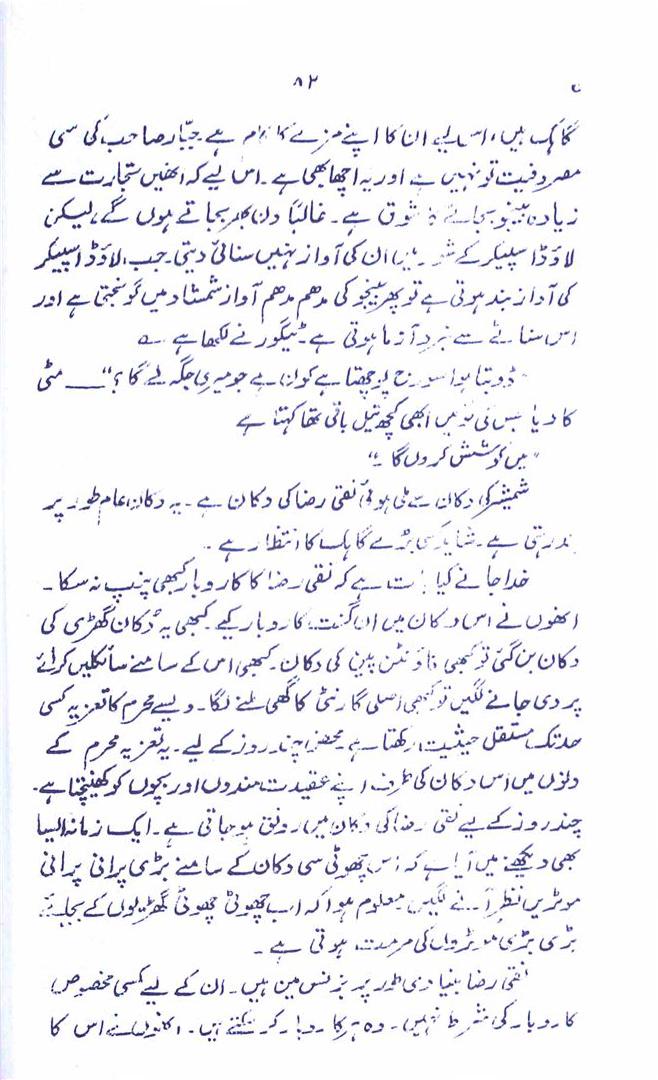 ۸۲
گاہک ہیں، اس لیے ان کا اپنے مزے کا کام ہے۔ جبّار صاحب کی سی
مصروفیت تو نہیں ہے اور یہ اچھا بھی ہے۔ اس لیے کہ انھیں تجارت سے
زیادہ بینجو بجانے کا شوق ہے۔ غالباً دن بھر بجاتے ہوں گے، لیکن
لاؤڈ اسپیکر کے شور میں ان کی آواز نہیں سنائی دیتی۔ جب لاؤڈ اسپیکر
کی آواز بند ہوتی ہے تو پھر بینجو کی مدھم مدھم آواز شمشاد میں گونجتی ہے اور
اس سناٹے سے نبرد آزما ہوتی ہے۔ ٹیگور نے لکھا ہے ؎
"ڈوبتا ہوا سورج پوچھتا ہے کون ہے جو میری جگہ لے گا؟" — مٹی
کا دیا جس کی لو میں ابھی کچھ تیل باقی تھا کہتا ہے
"میں کوشش کروں گا۔"
شمشیر کی دکان سے ملی ہوئی نقی رضا کی دکان ہے۔ یہ دکان عام طور پر
بند رہتی ہے۔ شاید کسی بڑے گاہک کا انتظار ہے۔
خدا جانے کیا بات ہے کہ نقی رضا کا کاروبار کبھی پنپ نہ سکا۔
انھوں نے اس دکان میں ان گنت کاروبار کیے۔ کبھی یہ دکان گھڑی کی
دکان بن گئی تو کبھی فاؤنٹن پین کی دکان۔ کبھی اس کے سامنے سائیکلیں کرائے
پر دی جانے لگیں تو کبھی اصلی گارنٹی کا گھی ملنے لگا۔ ویسے محرم کا تعزیہ کسی
حد تک مستقل حیثیت رکھتا ہے۔ محض چند روز کے لیے۔ یہ تعزیہ محرم کے
دنوں میں اس دکان کی طرف اپنے عقیدت مندوں اور بچوں کو کھینچتا ہے۔
چند روز کے لیے نقی رضا کی دکان میں رونق ہو جاتی ہے۔ ایک زمانہ ایسا
بھی دیکھنے میں آیا ہے کہ اس چھوٹی سی دکان کے سامنے بڑی پرانی پرانی
موٹریں نظر آنے لگیں۔ معلوم ہوا کہ اب چھوٹی چھوٹی گھڑیوں کے بجائے
بڑی بڑی موٹروں کی مرمت ہوتی ہے۔
نقی رضا بنیادی طور پر بزنس مین ہیں۔ ان کے لیے کسی مخصوص
کاروبار کی شرط نہیں۔ وہ ہر کاروبار کر سکتے ہیں۔ انھوں نے اس کا